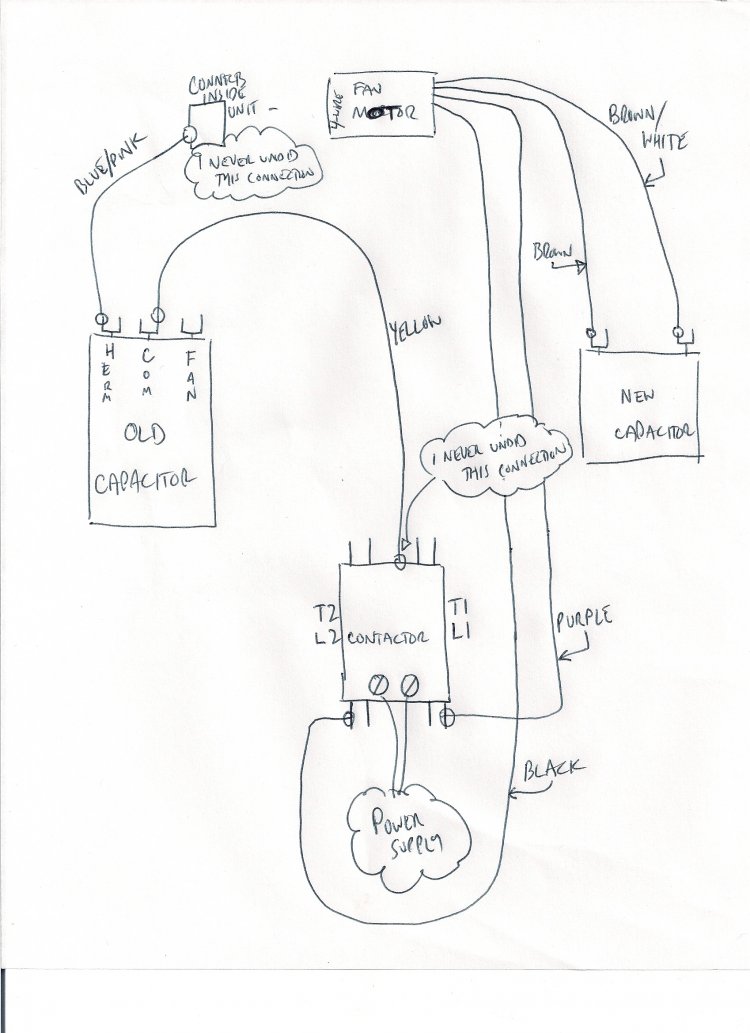 CONNECTS
INSIDE
UNIT -
I NEVER UNDID
THIS CONNECTION
BLUE/PINK
4-WIRE
FAN
MOTOR
BROWN/
WHITE
BROWN
YELLOW
HERM
COM
FAN
OLD
CAPACITOR
NEW
CAPACITOR
I NEVER UNDID
THIS CONNECTION
T2
L2
CONTACTOR
T1
L1
PURPLE
BLACK
POWER
SUPPLY